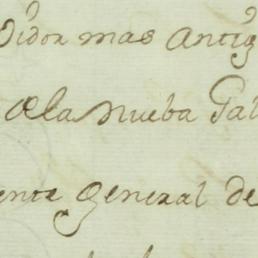 Oidor mas Antig
de la Nueba Gal
ente General de